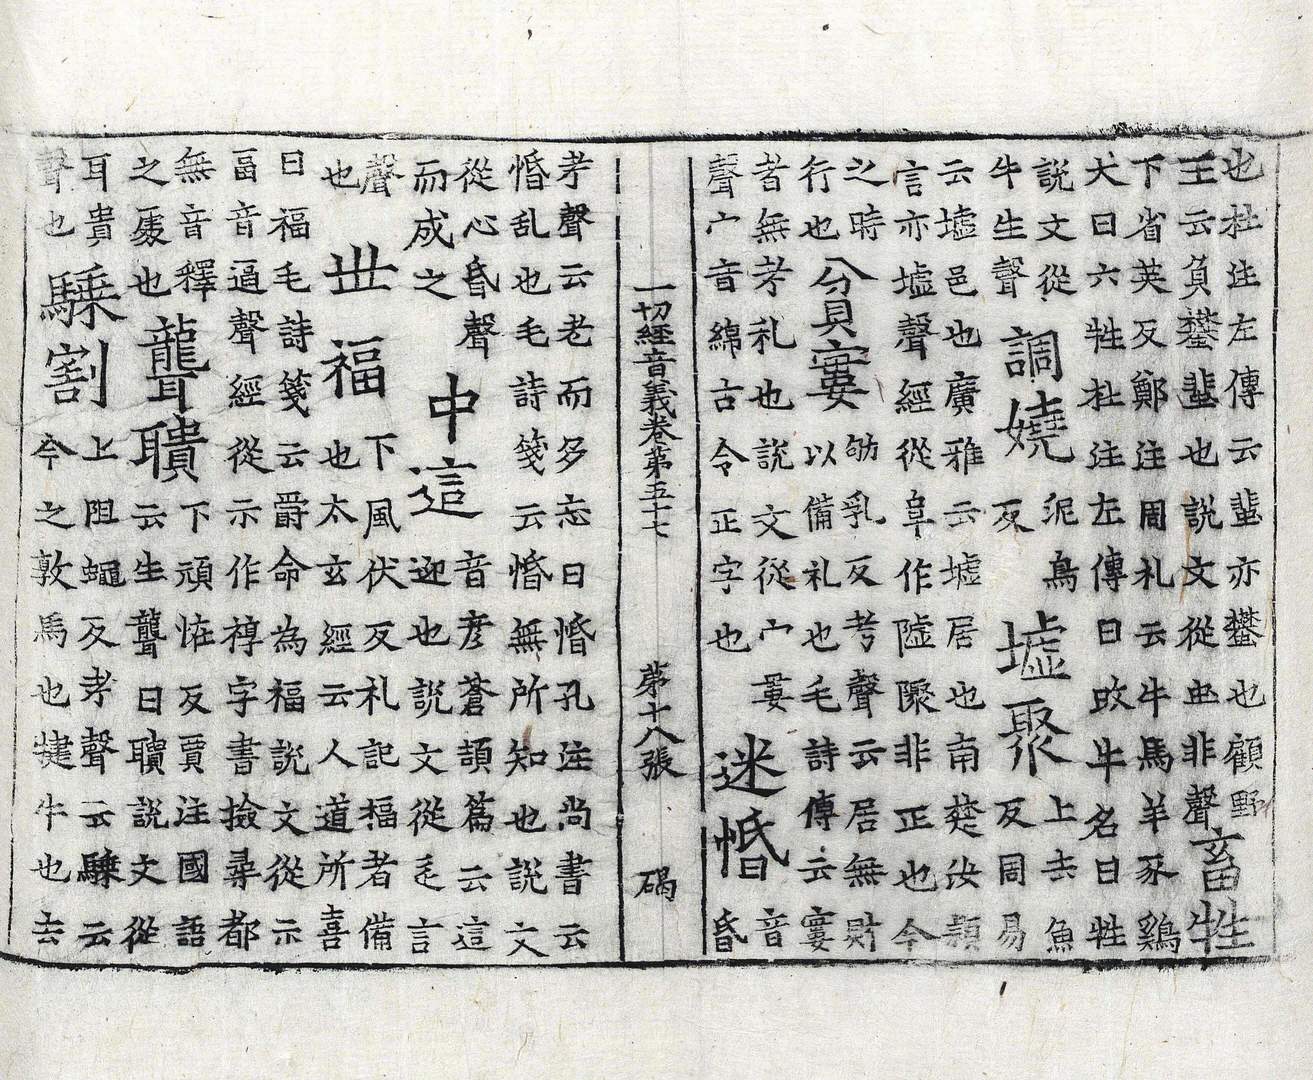 也杜注左傳云蜚亦蠜也顧野
王云負蠜蜚也說文從虫非聲畜牲
下省英反鄭注周札云牛馬羊豕鷄
犬曰六牲杜注左傳曰攺牛名曰牲
說文從牛生聲調嬈泥鳥反墟聚上去魚反周易
云墟邑也廣雅云墟居也南楚汝頴
言亦墟聲經從阜作聚非正也今
之時行也貧寠劬乳反考聲云居無財以備礼也毛詩傳云寠
者無考礼也說文從宀婁聲宀音綿古今正字也迷惛音昏
一切經音義卷第五十七 第十八張 碣
考聲云老而多忘曰惛孔注尚書云
惛乱也毛詩箋云惛無所知也說文
從心昏聲而成之中這音彦蒼頡篇云這迎也說文從辵言
聲也世福下風伏反札記福者備也太玄經云人道所喜
曰福毛詩箋云爵命為福說文從示
畐音逼聲經從示作椁字書撿尋都
無音釋之處也聾聵下頑恠反賈注國語云生聾曰聵說文從
耳貴聲也騬割上阻蠅反考聲云騬云今之敦馬也犍牛也去